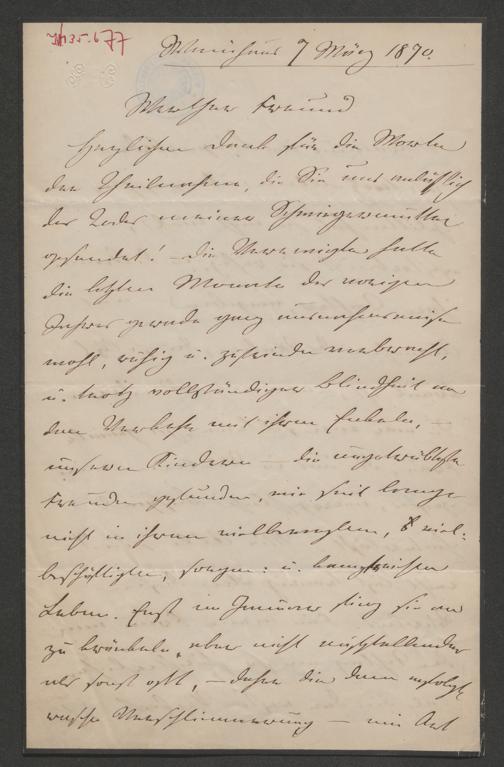 JN 135.677
7 März 1890.
Werther Freund
Herzlichen Dank für die Worte
der Theilnahme, die Sie uns anläßlich
des Todes meiner Schwiegermutter
gesendet! – Die Verewigte hatte
die letzten Monate des vorigen
Jahres gerade ganz ausnahmsweise
wohl, ruhig u. zufrieden verbracht,
u. trotz vollständiger Blindheit an
dem Verkehr mit ihren Enkeln, –
unseren Kindern – die ungetrübteste
Freude gefunden, wie seit lange
nicht in ihrem vielbewegten, viel-
beschäftigten, sorgen- u. kampfreichen
Leben. Erst im Jänner fing sie an
zu kränkeln, aber nicht auffallender
als sonst oft, – daher die dann erfolgte
rasche Verschlimmerung – ein Art